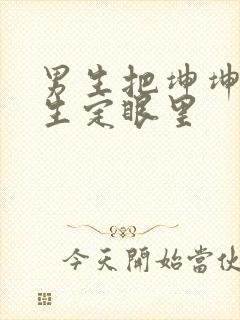 男生把坤坤
生定眼里
今天開始當伙